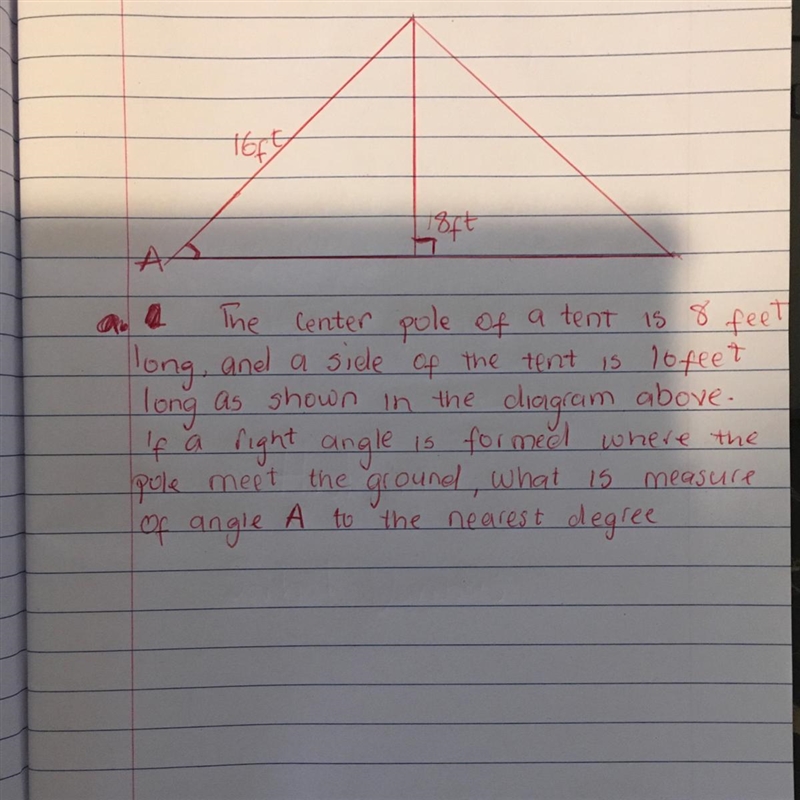 16ft
18ft
A
a. The center pole of a tent is 8 feet
long, and a side of the tent is 16feet
long as shown in the diagram above.
If a right angle is formed where the
pole meet the ground, what is measure
of angle A to the nearest degree